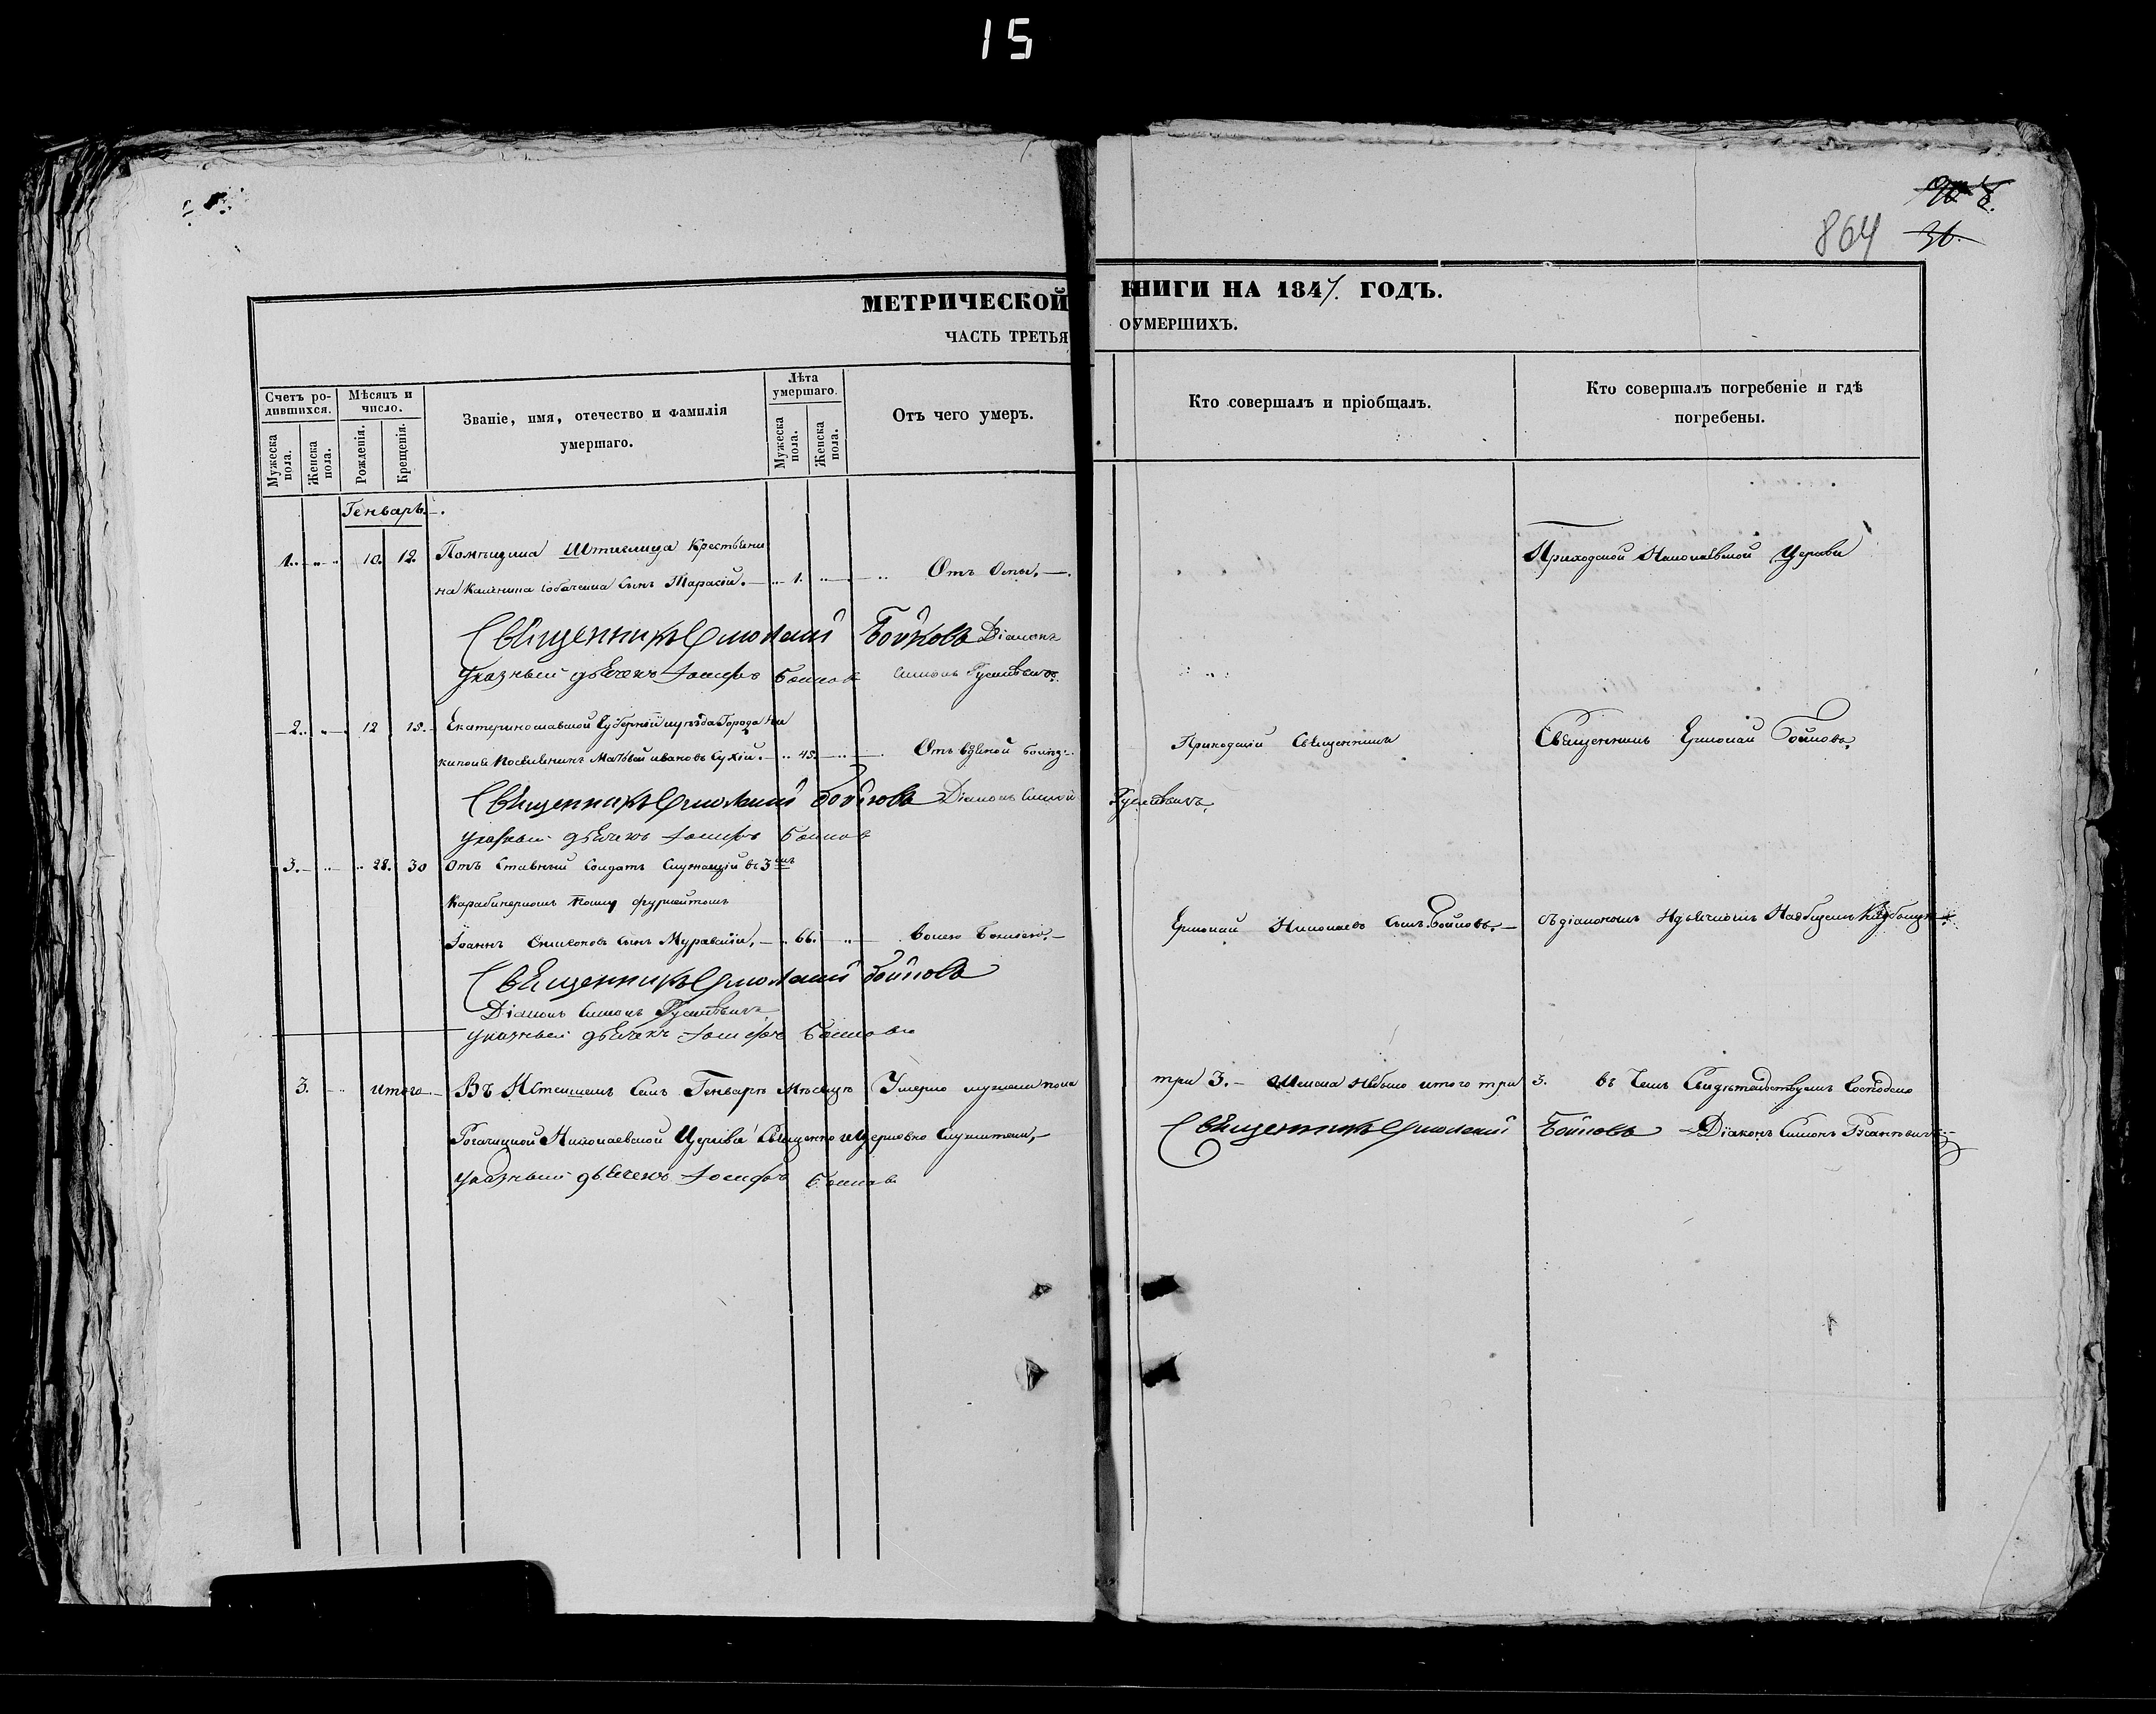 15
90 8.
864 36.
МЕТРИЧЕСКОЙ КНИГИ НА 1847. ГОДЪ.
ЧАСТЬ ТРЕТЬЯ О УМЕРШИХЪ.
Счетъ ро-
дившихся.
Мужеска
пола.
Женска
пола.
Мѣсяцъ и
число.
Рожденія.
Крещенія.
Званіе, имя, отечество и фамилія
умершаго.
Лѣта
умершаго.
Мужеска
пола.
Женска
пола.
Отъ чего умеръ.
Кто совершалъ и пріобщалъ.
Кто совершалъ погребеніе и гдѣ
погребены.
Генварь.
1. 10. 12. Помѣщика Штиглица Крестьяни
на сынъ Тарасій. 1. Отъ Оспы.
Приходской Николаевской Церкви
Священникъ Ермолай Бойковъ Діаконъ
Указный дьячекъ Іосифъ Бойковъ Симонъ
2. 12 15. Екатеринославской Губерніи уѣзда Города Ни
кополя Иванов Сухій. 45. Отъ болѣз
Приходскій Священникъ
Священникъ Ермолай Бойковъ.
Священникъ Ермолай Бойковъ Діаконъ Симонъ
Указный дьячекъ Іосифъ Бойковъ
3. 28. 30 Отъ Ставный Солдатъ Служащій въ 3мъ
Карабинерномъ полку фурлейтомъ
Іоаннъ сынъ Муравскій. 66.
Ермолай Николаевъ Сынъ Бойковъ.
съ діакономъ
Священникъ Ермолай Бойковъ
Діаконъ Симонъ
Указный дьячекъ Іосифъ Бойковъ
3. итого Въ Истекшемъ Семъ Генварѣ Мѣсяцѣ Умерло мужеска пола три 3. Женска небыло итого три 3. въ Чемъ Свидѣтельствуемъ
Николаевской Церкви Священно и Церковно Служители,
Священникъ Ермолай Бойковъ Діаконъ Симонъ
Указный дьячекъ Іосифъ Бойковъ